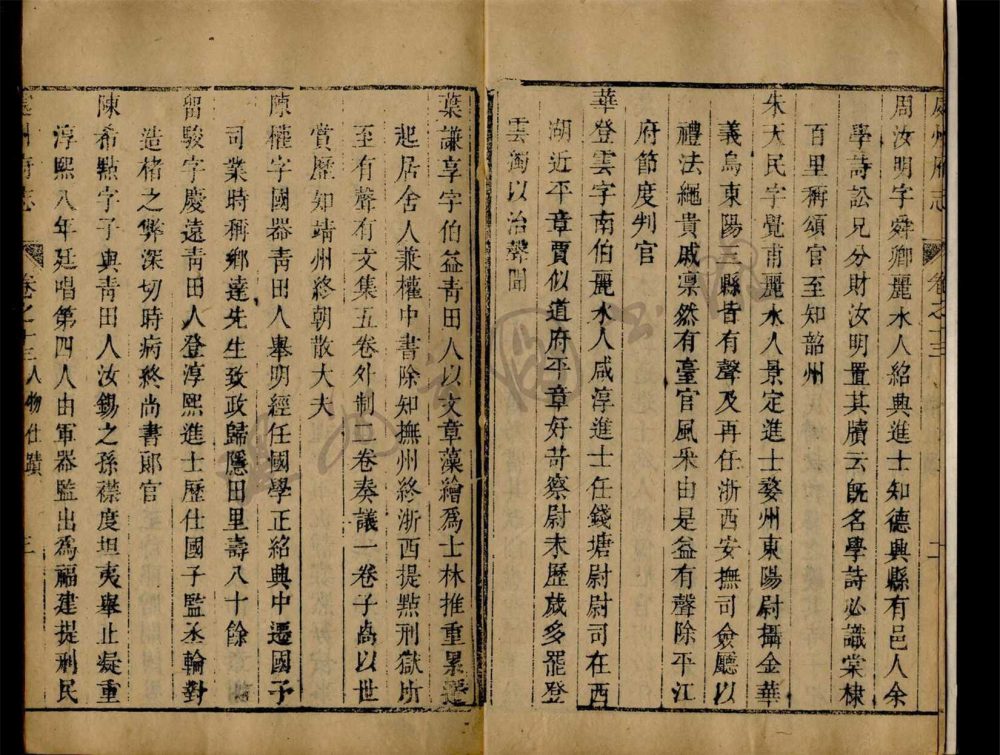 處州府志 卷之十三 二
周汝明字舜卿麗水人紹興進士知德興縣有邑人余
學詩訟兄分財汝明置其牘云旣名學詩必識棠棣
百里稱頌官至知韶州
朱大民字覺甫麗水人景定進士婺州東陽尉攝金華
義烏東陽三縣皆有聲及再任浙西安撫司僉廳以
禮法繩貴戚凜然有臺官風采由是益有聲除平江
府節度判官
華登雲字南伯麗水人咸淳進士任錢塘尉尉司在西
湖近平章賈似道府平章好苛察尉未歷歲多罷登
雲獨以治聲聞
葉謙亨字伯益青田人以文章藻繪爲士林推重累遷
起居舍人兼權中書除知撫州終浙西提點刑獄所
至有聲有文集五卷外制二卷奏議一卷子卨以世
賞歷知靖州終朝散大夫
陳權字國器青田人舉明經任國學正紹興中遷國子
司業時稱鄉達先生致政歸隱田里壽八十餘
留駿字慶遠青田人登淳熙進士歷仕國子監丞輪對
造楮之弊深切時病終尚書郎官
陳希點字子與青田人汝錫之孫襟度坦夷舉止凝重
淳熙八年廷唱第四人由軍器監出爲福建提刑民
處州府志 卷之十三人物仕蹟 三